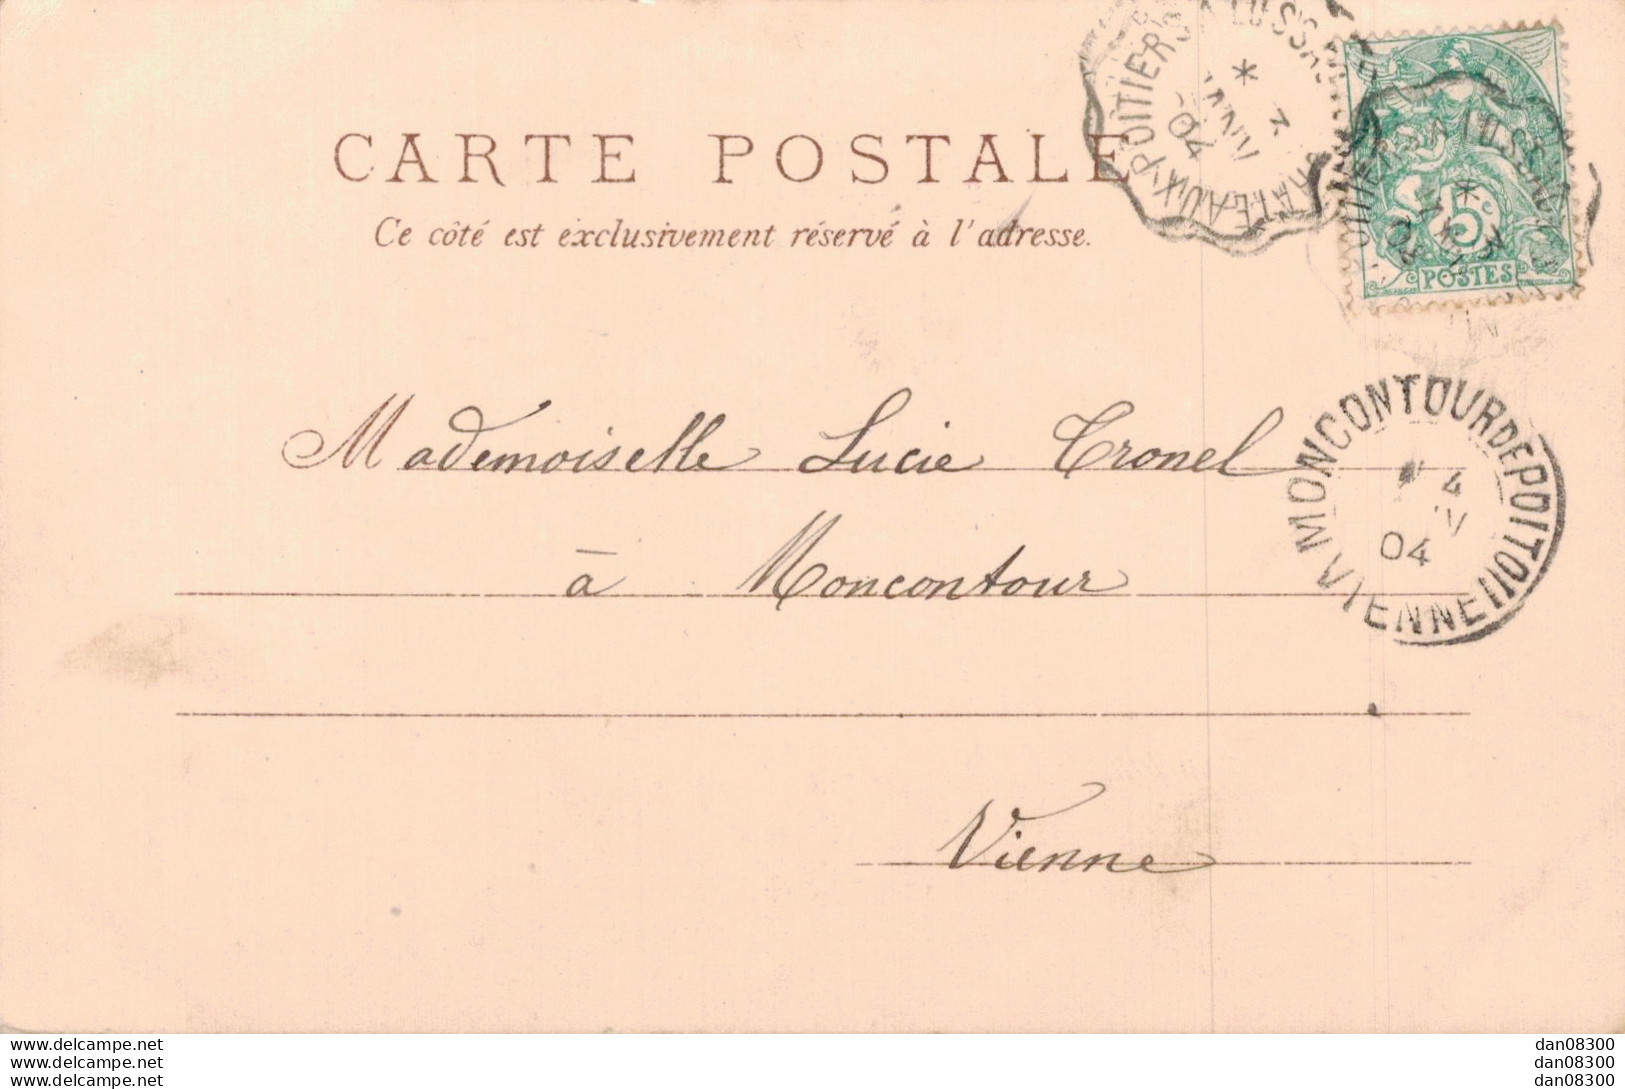 CARTE POSTALE
Ce côté est exclusivement réservé à l'adresse.
POITIERS A LUSSAC
CHATEAUX
*
3
JANV
04
5c
POSTES
Mademoiselle Lucie Cronel
à Moncontour
Vienne
MONCONTOUR DE POITOU
VIENNE
4
04
www.delcampe.net
www.delcampe.net
www.delcampe.net
dan08300
dan08300
dan08300